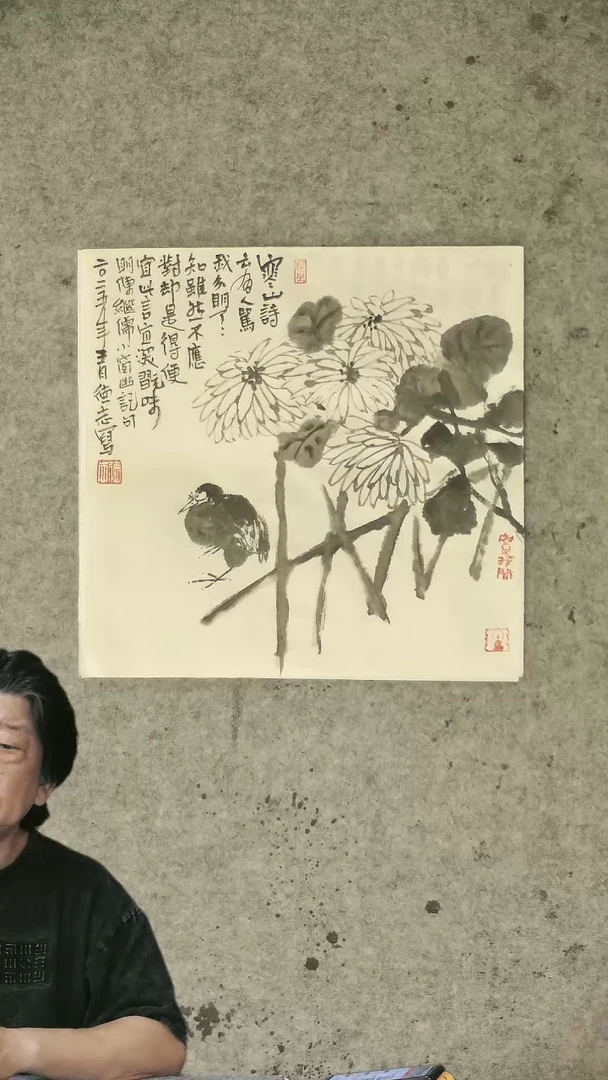 寒山詩
云有人罵
我分明了々
知雖然不應
對却是得便
宜此言宜深翫味
明陳繼儒小窗幽記句
二〇二五年德志寫